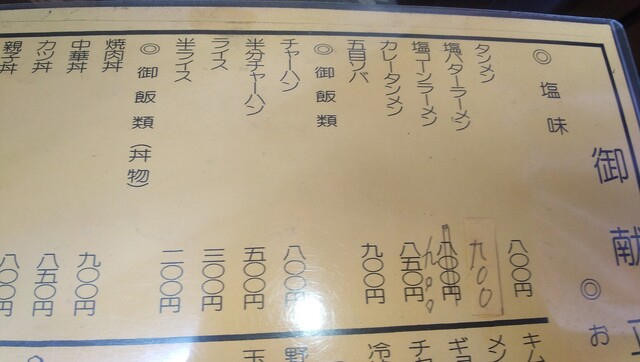 御献
◎塩味
タンメン 八〇〇円
塩バターラーメン 九〇〇
塩コーンラーメン 八五〇円
カレータンメン 九〇〇円
五目ソバ
◎御飯類
チャーハン 八〇〇円
半分チャーハン 五〇〇円
ライス 三〇〇円
半ライス 二〇〇円
◎御飯類(丼物)
焼肉丼
中華丼 九〇〇円
カツ丼 八五〇円
親子丼 八〇〇円
◎お
キム
メン
ギョ
チャ
冷
野
玉